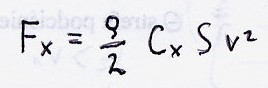 Fₓ = ρ/2 Cₓ S v²